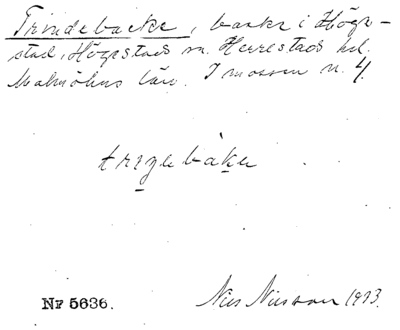 Trindebacke, backe i Högs-
stad, Högestads sn. Herrestads hd.
Malmöhus län. I mossen n. 4.
trinebàke
Nr 5636.
Nils Nilsson 1933.